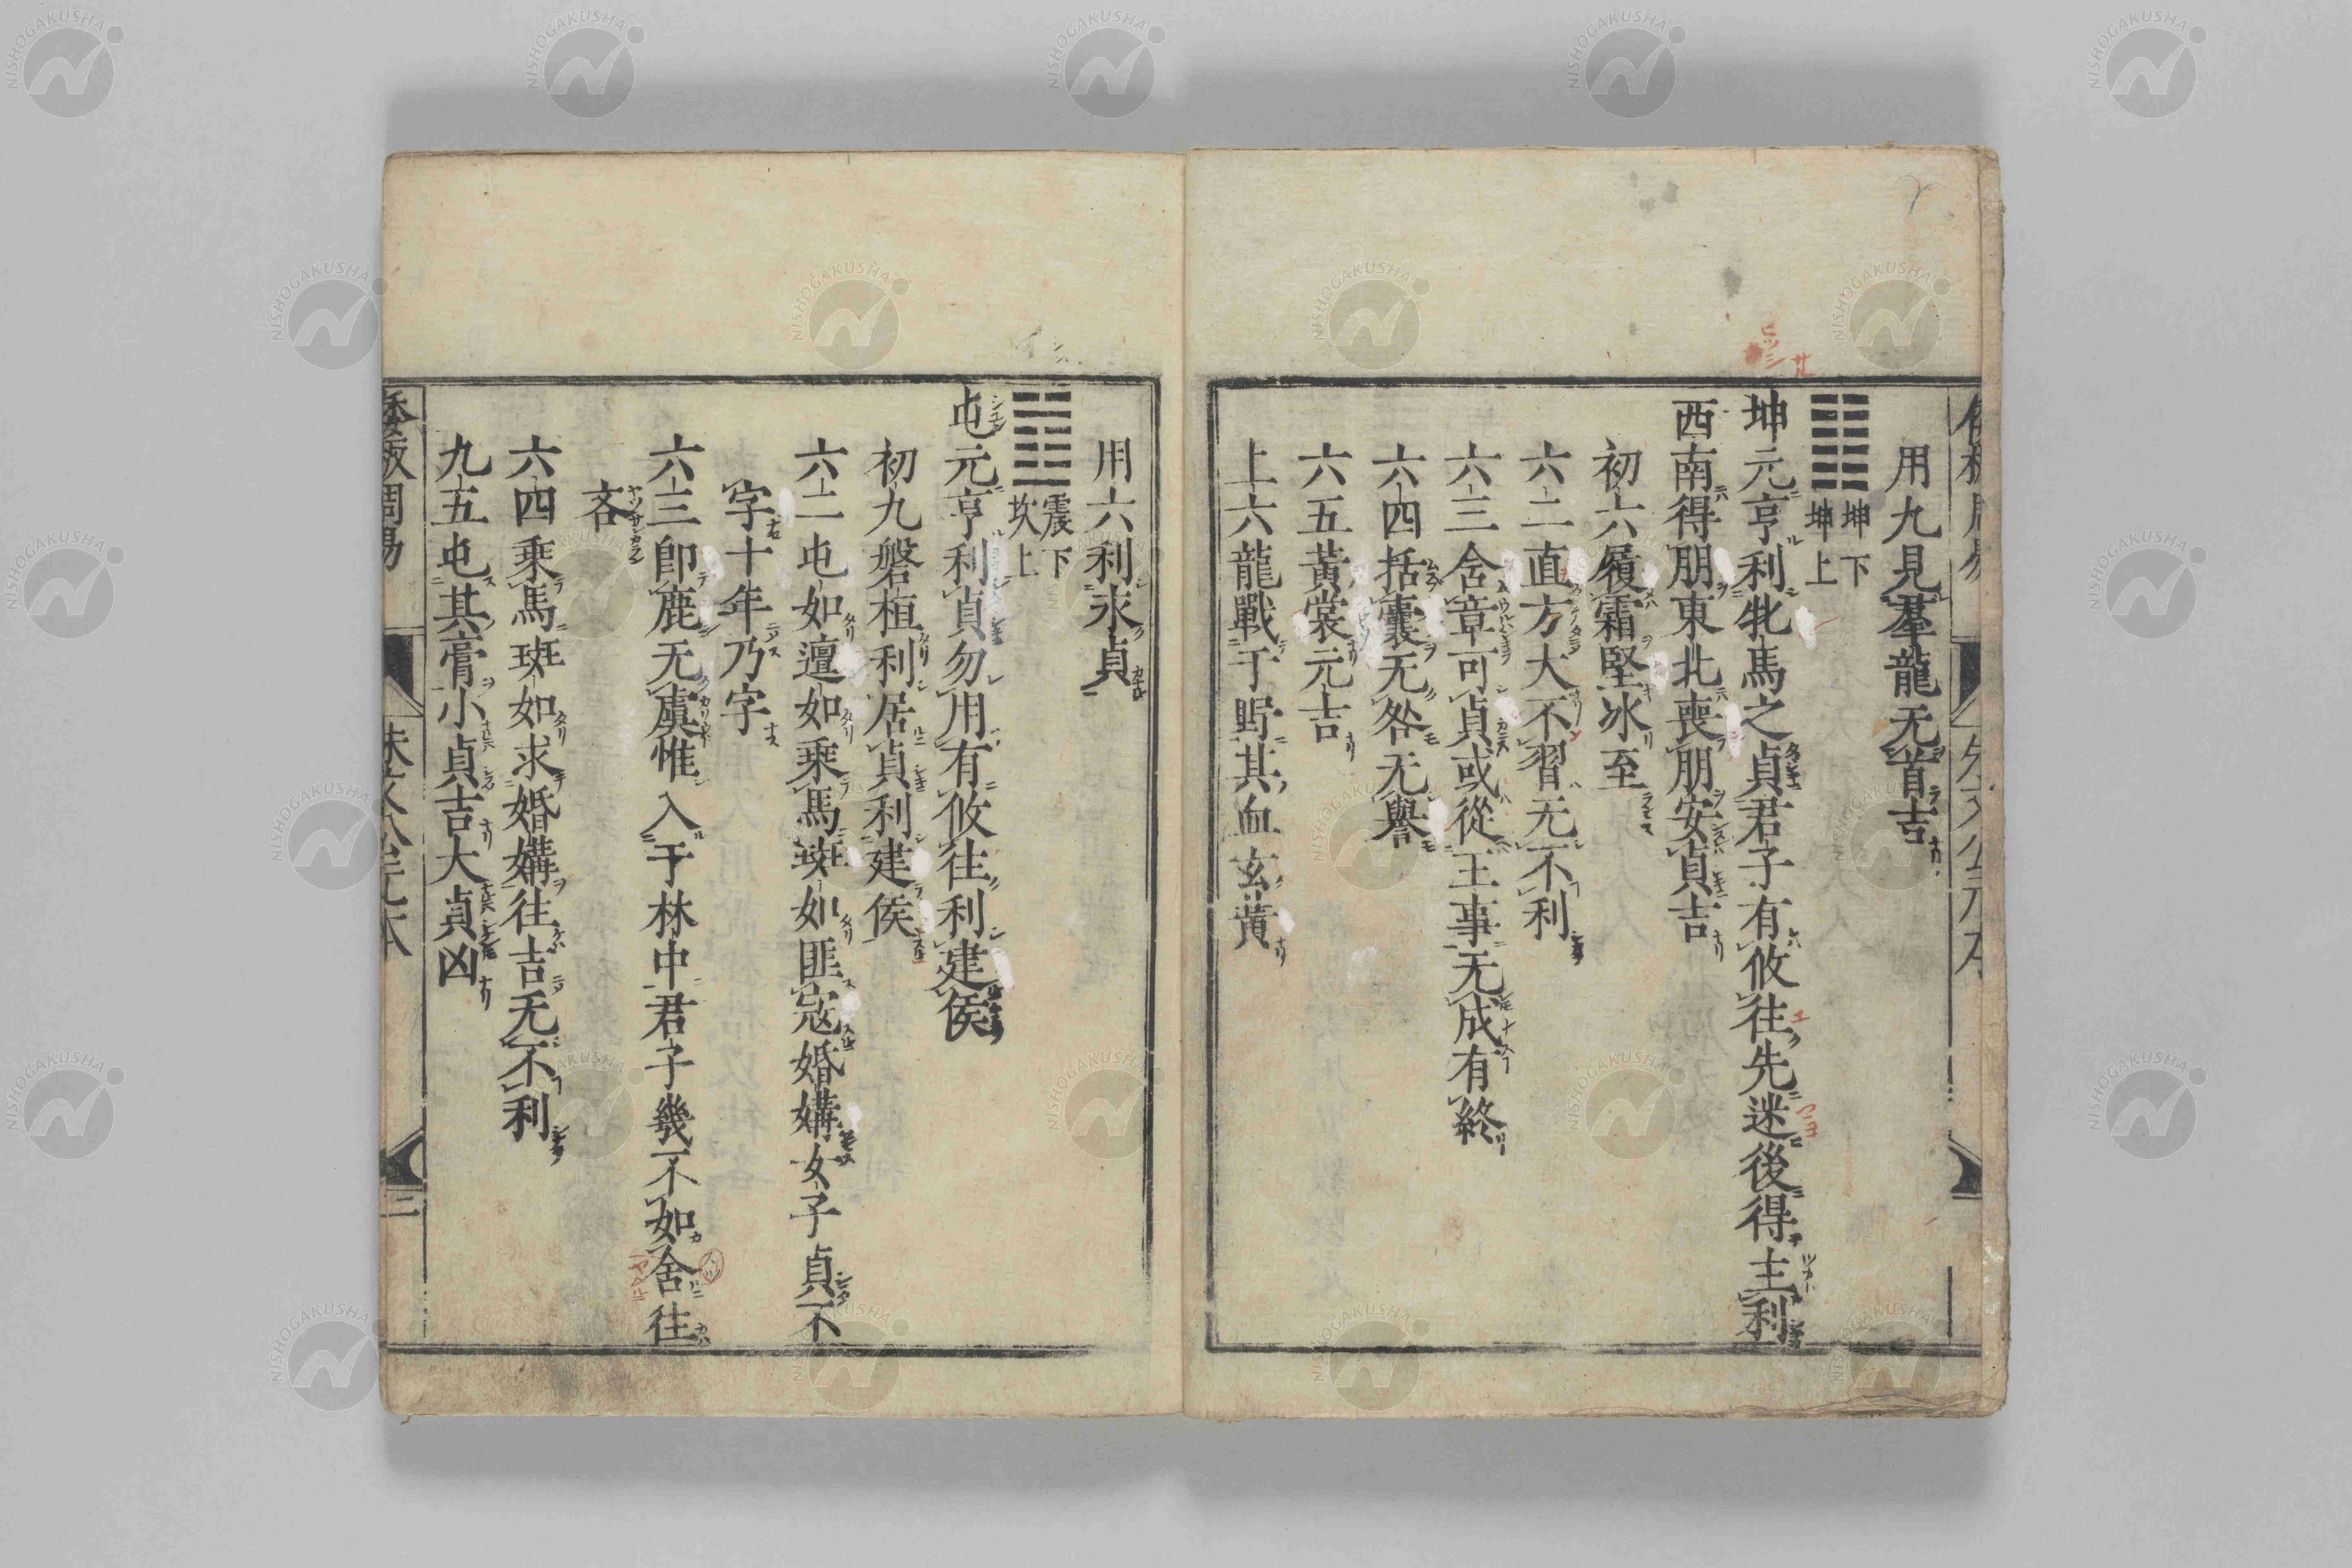 用九見羣龍无首吉
坤下
坤上
坤元亨利牝馬之貞君子有攸往先迷後得主利
西南得朋東北喪朋安貞吉
初六履霜堅冰至
六二直方大不習无不利
六三含章可貞或從王事无成有終
六四括囊无咎无譽
六五黃裳元吉
上六龍戰于野其血玄黃
用六利永貞
震下
坎上
屯元亨利貞勿用有攸往利建侯
初九磐桓利居貞利建侯
六二屯如邅如乘馬班如匪寇婚媾女子貞不
字十年乃字
六三即鹿无虞惟入于林中君子幾不如舍往
吝
六四乘馬班如求婚媾往吉无不利
九五屯其膏小貞吉大貞凶
NISHOGAKUSHA